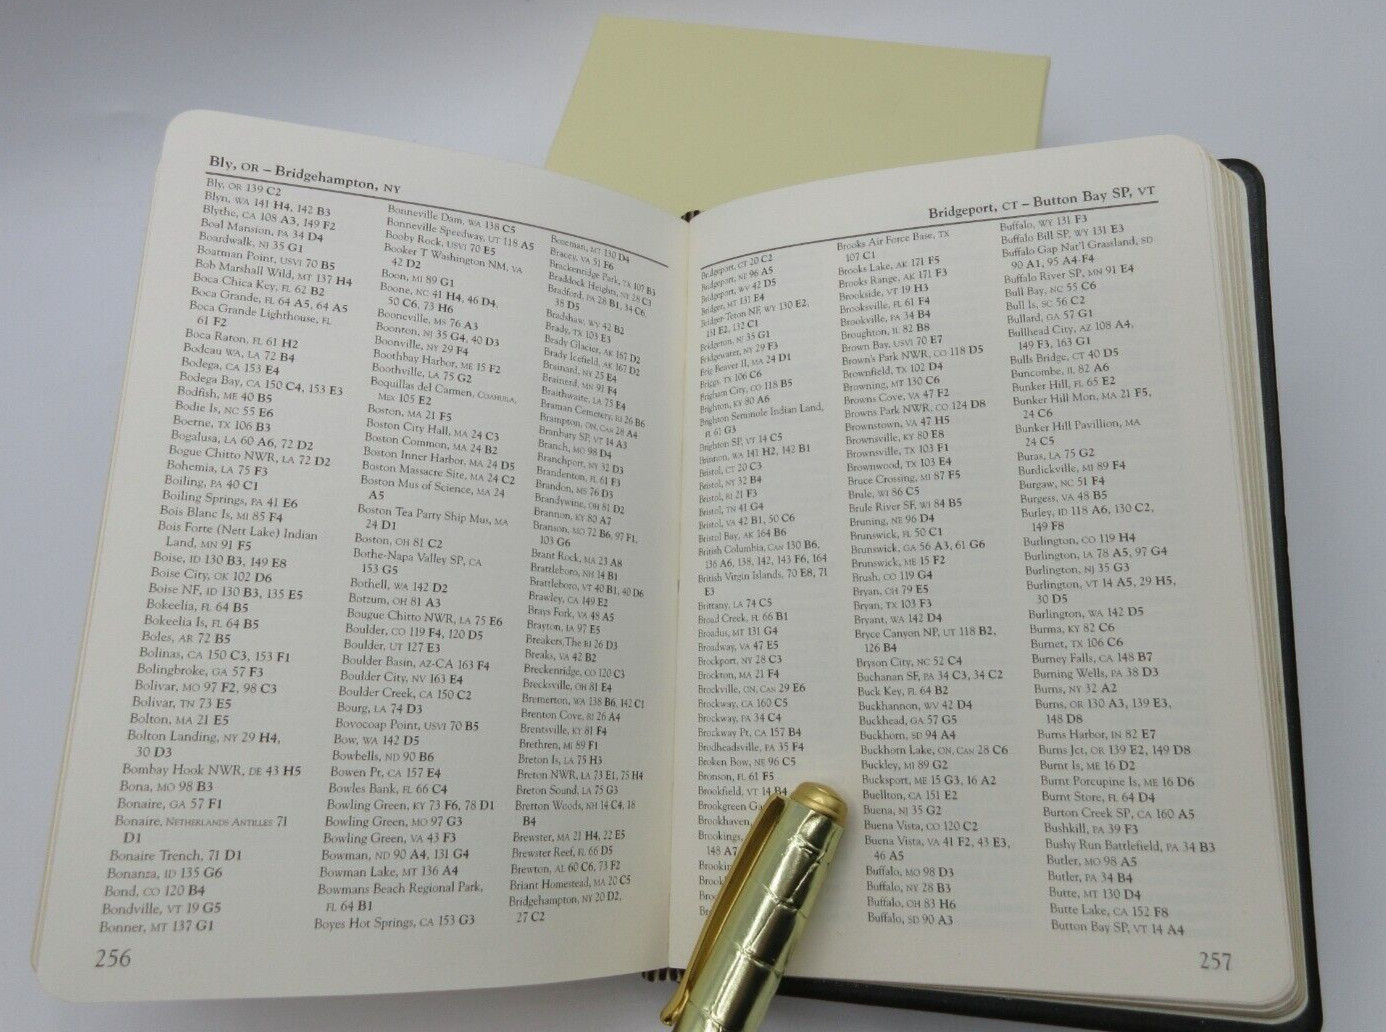 Bly, OR – Bridgehampton, NY
Bly, OR 139 C2
Blyn, WA 141 H4, 142 B3
Blythe, CA 108 A3, 149 F2
Boal Mansion, PA 34 D4
Boardwalk, NJ 35 G1
Boatman Point, USVI 70 B5
Bob Marshall Wild, MT 137 H4
Boca Chica Key, FL 62 B2
Boca Grande, FL 64 A5, 64 A5
Boca Grande Lighthouse, FL
61 F2
Boca Raton, FL 61 H2
Bodcau WA, LA 72 B4
Bodega, CA 153 E4
Bodega Bay, CA 150 C4, 153 E3
Bodfish, ME 40 B5
Bodie Is, NC 55 E6
Boerne, TX 106 B3
Bogalusa, LA 60 A6, 72 D2
Bogue Chitto NWR, LA 72 D2
Bohemia, LA 75 F3
Boiling, PA 40 C1
Boiling Springs, PA 41 E6
Bois Blanc Is, MI 85 F4
Bois Forte (Nett Lake) Indian
Land, MN 91 F5
Boise, ID 130 B3, 149 E8
Boise City, OK 102 D6
Boise NF, ID 130 B3, 135 E5
Bokeelia, FL 64 B5
Bokeelia Is, FL 64 B5
Boles, AR 72 B5
Bolinas, CA 150 C3, 153 F1
Bolingbroke, GA 57 F3
Bolivar, MO 97 F2, 98 C3
Bolivar, TN 73 E5
Bolton, MA 21 E5
Bolton Landing, NY 29 H4,
30 D3
Bombay Hook NWR, DE 43 H5
Bona, MO 98 B3
Bonaire, GA 57 F1
Bonaire, NETHERLANDS ANTILLES 71
D1
Bonaire Trench, 71 D1
Bonanza, ID 135 G6
Bond, CO 120 B4
Bondville, VT 19 G5
Bonner, MT 137 G1
Bonneville Dam, WA 138 C5
Bonneville Speedway, UT 118 A5
Booby Rock, USVI 70 E5
Booker T Washington NM, VA
42 D2
Boon, MI 89 G1
Boone, NC 41 H4, 46 D4,
50 C6, 73 H6
Booneville, MS 76 A3
Boonton, NJ 35 G4, 40 D3
Boonville, NY 29 F4
Boothbay Harbor, ME 15 F2
Boothville, LA 75 G2
Boquillas del Carmen, COAHUILA,
MEX 105 E2
Boston, MA 21 F5
Boston City Hall, MA 24 C3
Boston Common, MA 24 B2
Boston Inner Harbor, MA 24 D5
Boston Massacre Site, MA 24 C2
Boston Mus of Science, MA 24
A5
Boston Tea Party Ship Mus, MA
24 D1
Boston, OH 81 C2
Bothe-Napa Valley SP, CA
153 G5
Bothell, WA 142 D2
Botzum, OH 81 A3
Bougue Chitto NWR, LA 75 E6
Boulder, CO 119 F4, 120 D5
Boulder, UT 127 E3
Boulder Basin, AZ-CA 163 F4
Boulder City, NV 163 E4
Boulder Creek, CA 150 C2
Bourg, LA 74 D3
Bovocoap Point, USVI 70 B5
Bow, WA 142 D5
Bowbells, ND 90 B6
Bowen Pt, CA 157 E4
Bowles Bank, FL 66 C4
Bowling Green, KY 73 F6, 78 D1
Bowling Green, MO 97 G3
Bowling Green, VA 43 F3
Bowman, ND 90 A4, 131 G4
Bowman Lake, MT 136 A4
Bowmans Beach Regional Park,
FL 64 B1
Boyes Hot Springs, CA 153 G3
Bozeman, MT 130 D4
Bracey, VA 51 F6
Brackenridge Park, TX 107 B3
Braddock Heights, NY 28 C3
Bradford, PA 28 B1, 34 C6,
38 D5
Bradshaw, WV 42 B2
Brady, TX 103 E3
Brady Glacier, AK 167 D2
Brady Icefield, AK 167 D2
Brainard, NY 25 E4
Brainerd, MN 91 F4
Braithwaite, LA 75 E4
Braman Cemetery, RI 26 B6
Brampton, ON, CAN 28 A4
Branbury SP, VT 14 A3
Branch, MO 98 D4
Branchport, NY 32 D3
Brandenton, FL 61 F3
Brandon, MS 76 D3
Brandywine, OH 81 D2
Brannon, KY 80 A7
Branson, MO 72 B6, 97 F1,
103 G6
Brant Rock, MA 23 A8
Brattleboro, NH 14 B1
Brattleboro, VT 40 B1, 40 D6
Brawley, CA 149 E2
Brays Fork, VA 48 A5
Brayton, IA 97 E5
Breakers, The RI 26 D3
Breaks, VA 42 B2
Breckenridge, CO 120 C3
Brecksville, OH 81 E4
Bremerton, WA 138 B6, 142 C1
Brenton Cove, RI 26 A4
Brentsville, KY 81 F4
Brethren, MI 89 F1
Breton Is, LA 75 H3
Breton NWR, LA 73 E1, 75 H4
Breton Sound, LA 75 G3
Bretton Woods, NH 14 C4, 18
B4
Brewster, MA 21 H4, 22 E5
Brewster Reef, FL 66 D5
Brewton, AL 60 C6, 73 F2
Briant Homestead, MA 20 C5
Bridgehampton, NY 20 D2,
27 C2
256
Bridgeport, CT – Button Bay SP, VT
Bridgeport, CT 20 C2
Bridgeport, NE 96 A5
Bridgeport, WV 42 D5
Bridger, MT 131 E4
Bridger-Teton NF, WY 130 E2,
131 E2, 132 C1
Bridgeton, NJ 35 G1
Bridgewater, NY 29 F3
Brig Beaver II, MA 24 D1
Briggs, TX 106 C6
Brigham City, CO 118 B5
Brighton, KY 80 A6
Brighton Seminole Indian Land,
FL 61 G3
Brighton SP, VT 14 C5
Brinnon, WA 141 H2, 142 B1
Bristol, CT 20 C3
Bristol, NY 32 B4
Bristol, RI 21 F3
Bristol, TN 41 G4
Bristol, VA 42 B1, 50 C6
Bristol Bay, AK 164 B6
British Columbia, CAN 130 B6,
136 A6, 138, 142, 143 F6, 164
British Virgin Islands, 70 E8, 71
E3
Brittany, LA 74 C5
Broad Creek, FL 66 B1
Broadus, MT 131 G4
Broadway, VA 47 E5
Brockport, NY 28 C3
Brockton, MA 21 F4
Brockville, ON, CAN 29 E6
Brockway, CA 160 C5
Brockway, PA 34 C4
Brockway Pt, CA 157 B4
Brodheadsville, PA 35 F4
Broken Bow, NE 96 C5
Bronson, FL 61 F5
Brookfield, VT 14 B4
Brookgreen Ga
Brookhaven,
Brookings,
148 A7
Brookin
Brook
Broo
Brooks Air Force Base, TX
107 C1
Brooks Lake, AK 171 F5
Brooks Range, AK 171 F3
Brookside, VT 19 H3
Brooksville, FL 61 F4
Brookville, PA 34 B4
Broughton, IL 82 B8
Brown Bay, USVI 70 E7
Brown's Park NWR, CO 118 D5
Brownfield, TX 102 D4
Browning, MT 130 C6
Browns Cove, VA 47 F2
Browns Park NWR, CO 124 D8
Brownstown, VA 47 H5
Brownsville, KY 80 E8
Brownsville, TX 103 F1
Brownwood, TX 103 E4
Bruce Crossing, MI 87 F5
Brule, WI 86 C5
Brule River SF, WI 84 B5
Bruning, NE 96 D4
Brunswick, FL 50 C1
Brunswick, GA 56 A3, 61 G6
Brunswick, ME 15 F2
Brush, CO 119 G4
Bryan, OH 79 E5
Bryan, TX 103 F3
Bryant, WA 142 D4
Bryce Canyon NP, UT 118 B2,
126 B4
Bryson City, NC 52 C4
Buchanan SF, PA 34 C3, 34 C2
Buck Key, FL 64 B2
Buckhannon, WV 42 D4
Buckhead, GA 57 G5
Buckhorn, SD 94 A4
Buckhorn Lake, ON, CAN 28 C6
Buckley, MI 89 G2
Bucksport, ME 15 G3, 16 A2
Buellton, CA 151 E2
Buena, NJ 35 G2
Buena Vista, CO 120 C2
Buena Vista, VA 41 F2, 43 E3,
46 A5
Buffalo, MO 98 D3
Buffalo, NY 28 B3
Buffalo, OH 83 H6
Buffalo, SD 90 A3
Buffalo, WY 131 F3
Buffalo Bill SP, WY 131 E3
Buffalo Gap Nat'l Grassland, SD
90 A1, 95 A4-F4
Buffalo River SP, MN 91 E4
Bull Bay, NC 55 C6
Bull Is, SC 56 C2
Bullard, GA 57 G1
Bullhead City, AZ 108 A4,
149 F3, 163 G1
Bulls Bridge, CT 40 D5
Buncombe, IL 82 A6
Bunker Hill, FL 65 E2
Bunker Hill Mon, MA 21 F5,
24 C6
Bunker Hill Pavillion, MA
24 C5
Buras, LA 75 G2
Burdickville, MI 89 F4
Burgaw, NC 51 F4
Burgess, VA 48 B5
Burley, ID 118 A6, 130 C2,
149 F8
Burlington, CO 119 H4
Burlington, IA 78 A5, 97 G4
Burlington, NJ 35 G3
Burlington, VT 14 A5, 29 H5,
30 D5
Burlington, WA 142 D5
Burma, KY 82 C6
Burnet, TX 106 C6
Burney Falls, CA 148 B7
Burning Wells, PA 38 D3
Burns, NY 32 A2
Burns, OR 130 A3, 139 E3,
148 D8
Burns Harbor, IN 82 E7
Burns Jct, OR 139 E2, 149 D8
Burnt Is, ME 16 D2
Burnt Porcupine Is, ME 16 D6
Burnt Store, FL 64 D4
Burton Creek SP, CA 160 A5
Bushkill, PA 39 F3
Bushy Run Battlefield, PA 34 B3
Butler, MO 98 A5
Butler, PA 34 B4
Butte, MT 130 D4
Butte Lake, CA 152 F8
Button Bay SP, VT 14 A4
257